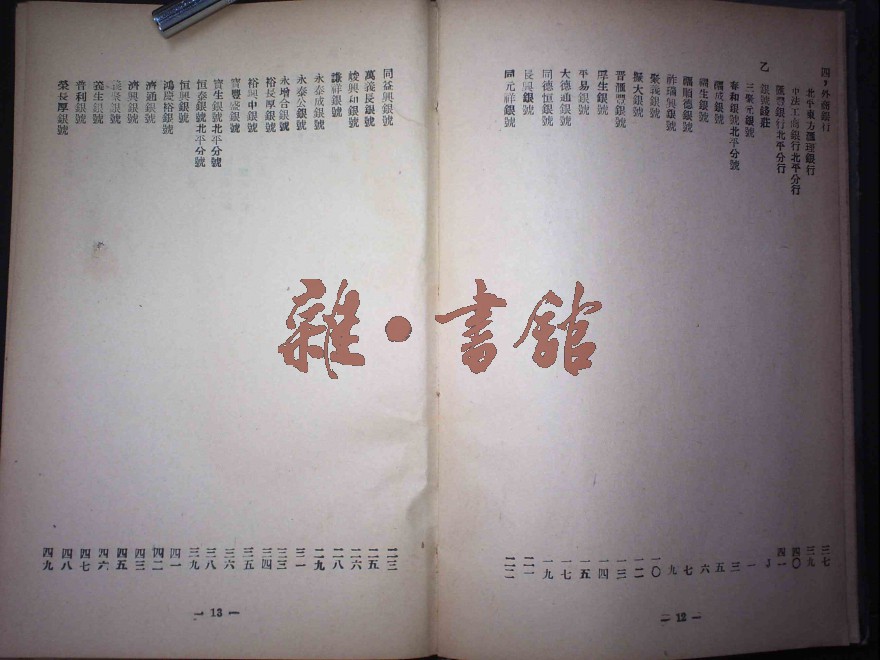 四，外商銀行 三七
北平東方匯理銀行 三九
中法工商銀行北平分行 四〇
匯豐銀行北平分行 四一
乙 銀號錢莊
三聚元銀號 一
春和銀號北平分號 三
成銀號 五
生銀號 六
順德銀號 七
祚瑞興銀號 九
聚義銀號 一〇
大銀號 一二
晉匯豐銀號 一三
厚生銀號 一四
平易銀號 一五
大德通銀號 一七
同德恒銀號 一九
長興銀號 二一
同元祥銀號 二二
— 12 —
同益興銀號 二三
萬義長銀號 二五
峻興和銀號 二六
謙祥銀號 二八
永泰成銀號 二九
永泰公銀號 三一
永增合銀號 三三
裕長厚銀號 三四
裕興中銀號 三五
寶豐盛銀號 三六
寶生銀號北平分號 三八
恒泰銀號北平分號 三九
恒興銀號 四一
鴻慶裕銀號 四二
濟通銀號 四三
濟興銀號 四五
義聚銀號 四六
義生銀號 四七
普利銀號 四八
榮長厚銀號 四九
— 13 —
雜·書館